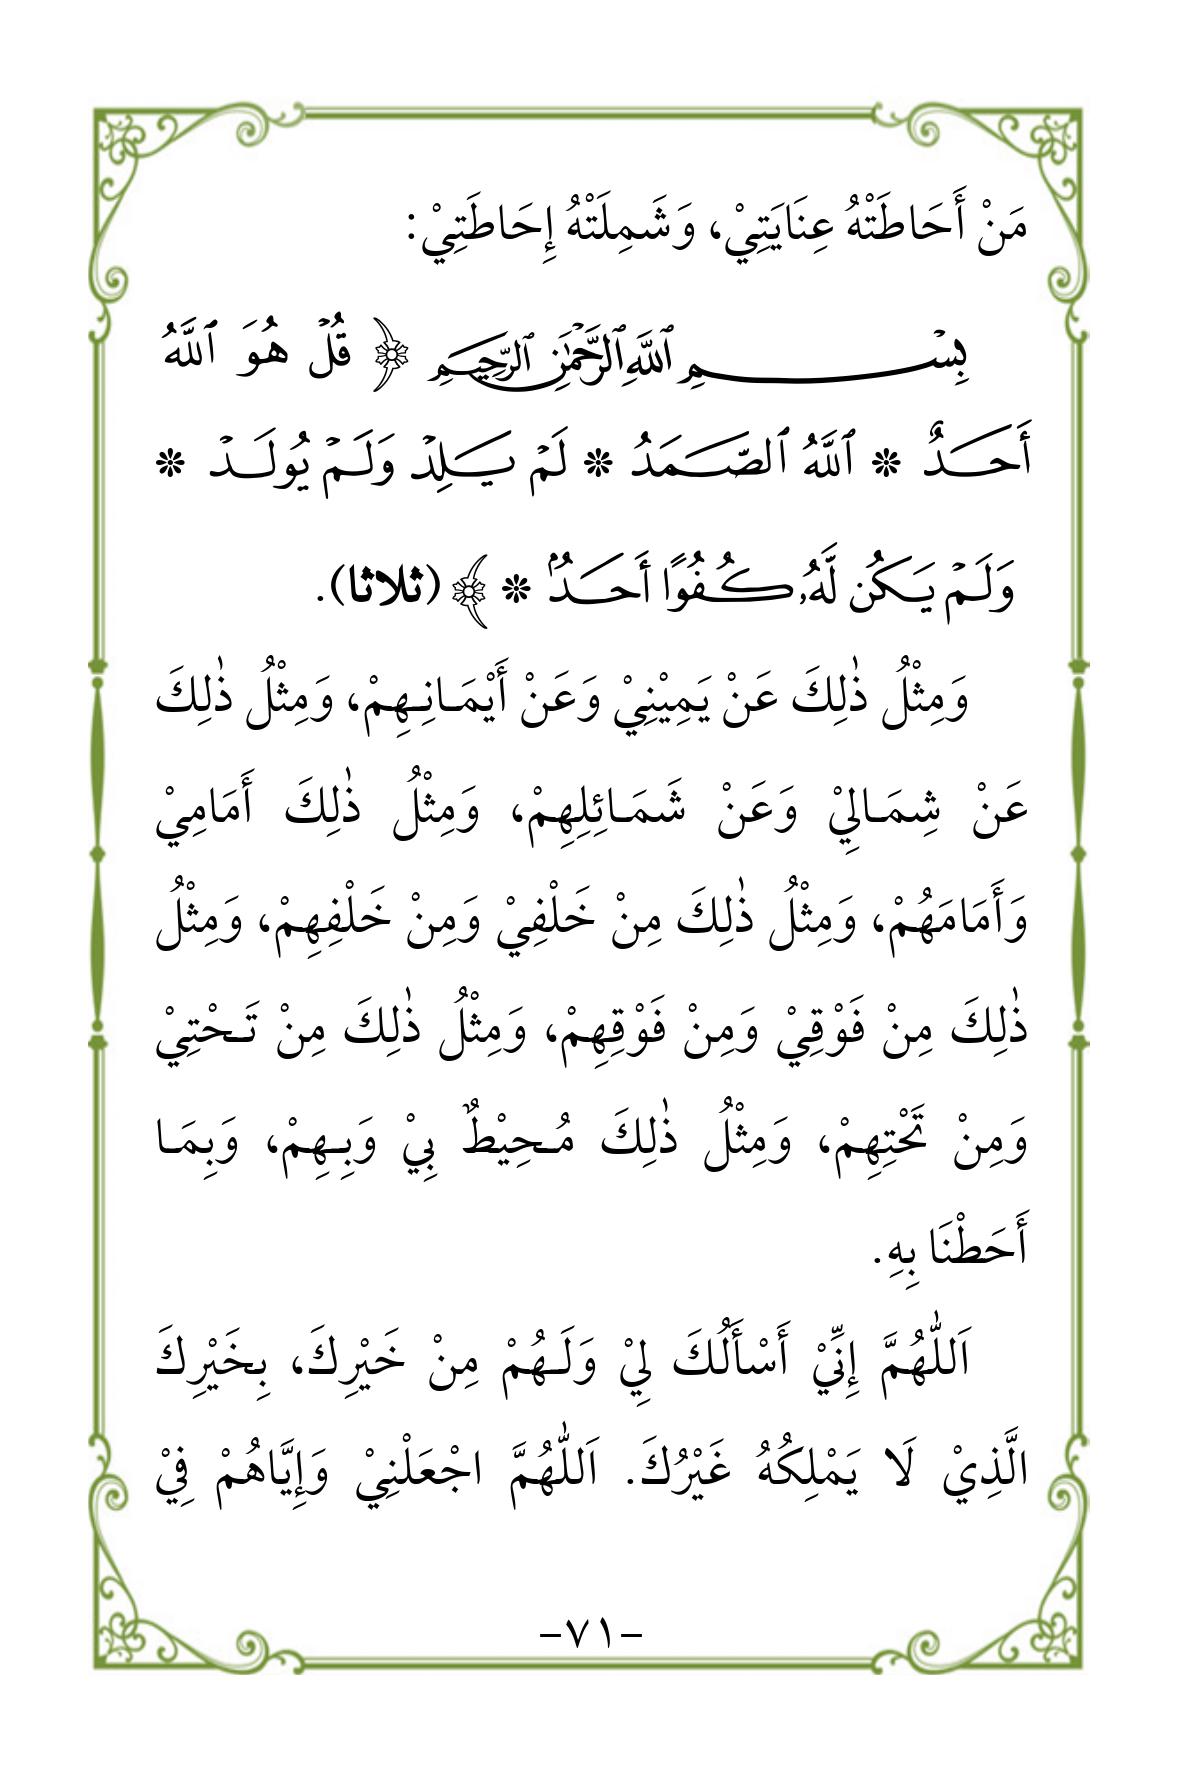 مَنْ أَحَاطَتْهُ عِنَايَتِيْ، وَشَمِلَتْهُ إِحَاطَتِيْ:
بِسْمِ ٱللَّهِ ٱلرَّحْمَٰنِ ٱلرَّحِيمِ ﴿ قُلْ هُوَ ٱللَّهُ
أَحَدٌ ❋ ٱللَّهُ ٱلصَّمَدُ ❋ لَمْ يَلِدْ وَلَمْ يُولَدْ ❋
وَلَمْ يَكُن لَّهُۥ كُفُوًا أَحَدٌۢ ❋ ﴾ (ثلاثا).
وَمِثْلُ ذٰلِكَ عَنْ يَمِيْنِيْ وَعَنْ أَيْمَـانِـهِمْ، وَمِثْلُ ذٰلِكَ
عَنْ شِمَـالِيْ وَعَنْ شَمَـائِلِهِمْ، وَمِثْلُ ذٰلِكَ أَمَامِيْ
وَأَمَامَهُمْ، وَمِثْلُ ذٰلِكَ مِنْ خَلْفِيْ وَمِنْ خَلْفِهِمْ، وَمِثْلُ
ذٰلِكَ مِنْ فَوْقِيْ وَمِنْ فَوْقِهِمْ، وَمِثْلُ ذٰلِكَ مِنْ تَـحْتِيْ
وَمِنْ تَحْتِهِمْ، وَمِثْلُ ذٰلِكَ مُـحِيْطٌ بِيْ وَبِـهِمْ، وَبِمَـا
أَحَطْنَا بِهِ.
اَللّٰهُمَّ إِنِّيْ أَسْأَلُكَ لِيْ وَلَـهُمْ مِنْ خَيْرِكَ، بِخَيْرِكَ
الَّذِيْ لَا يَمْلِكُهُ غَيْرُكَ. اَللّٰهُمَّ اجْعَلْنِيْ وَإِيَّاهُمْ فِيْ
-٧١-